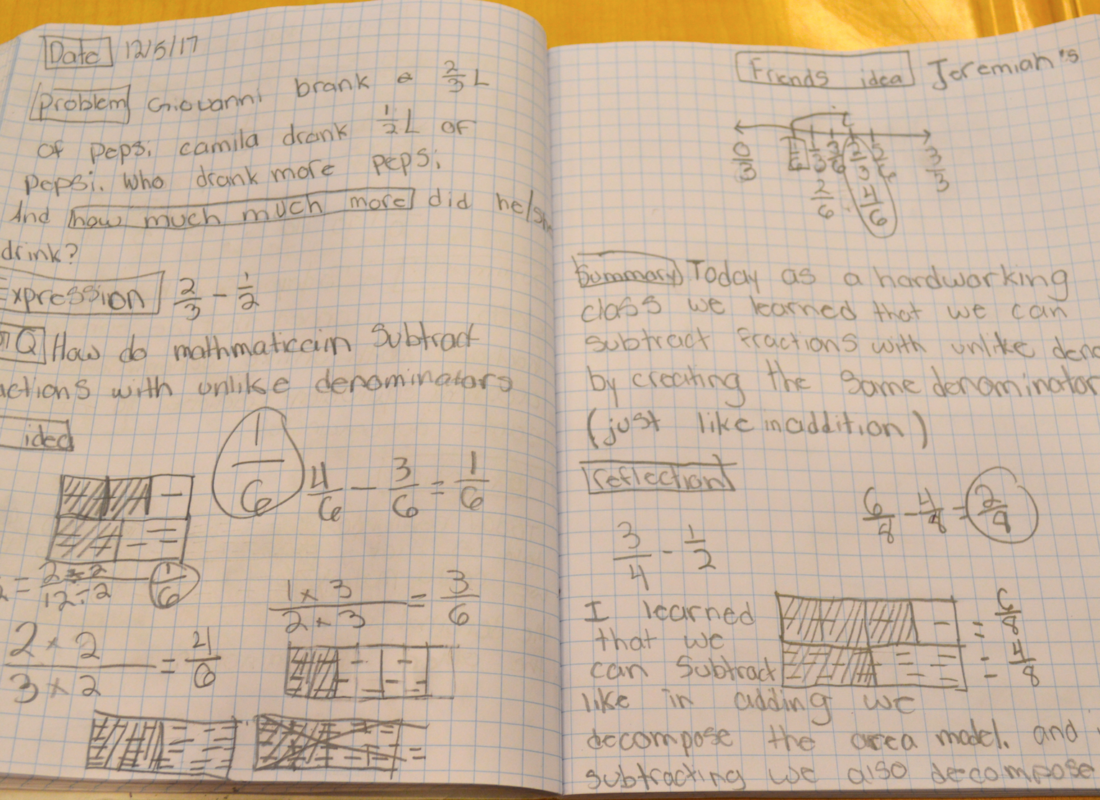 Date 12/5/17
Problem Giovanni brank a 2/3 L
of peps. camila drank 1/2 L of
pepsi. Who drank more pepsi.
And how much much more did he/she
drink?
Expression 2/3 - 1/2
Q How do mathmaticain Subtract
actions with unlike denominators
idea
1/6
4/6 - 3/6 = 1/6
= 2÷2/12÷2 1/6
1 x 3/2 x 3 = 3/6
2 x 2/3 x 2 = 4/6
Friends idea Jeremiah's
0/3 1/6 1/3 3/6 2/3 3/3
2/6 4/6
Summary Today as a hardworking
class we learned that we can
subtract fractions with unlike deno
by creating the same denominator
(just like in addition)
Reflection
6/8 - 4/8 = 2/8
3/4 - 1/2
I learned = 6/8
that we
can Subtract = 4/8
like in adding we
decompose the area model. and
subtracting we also decompose